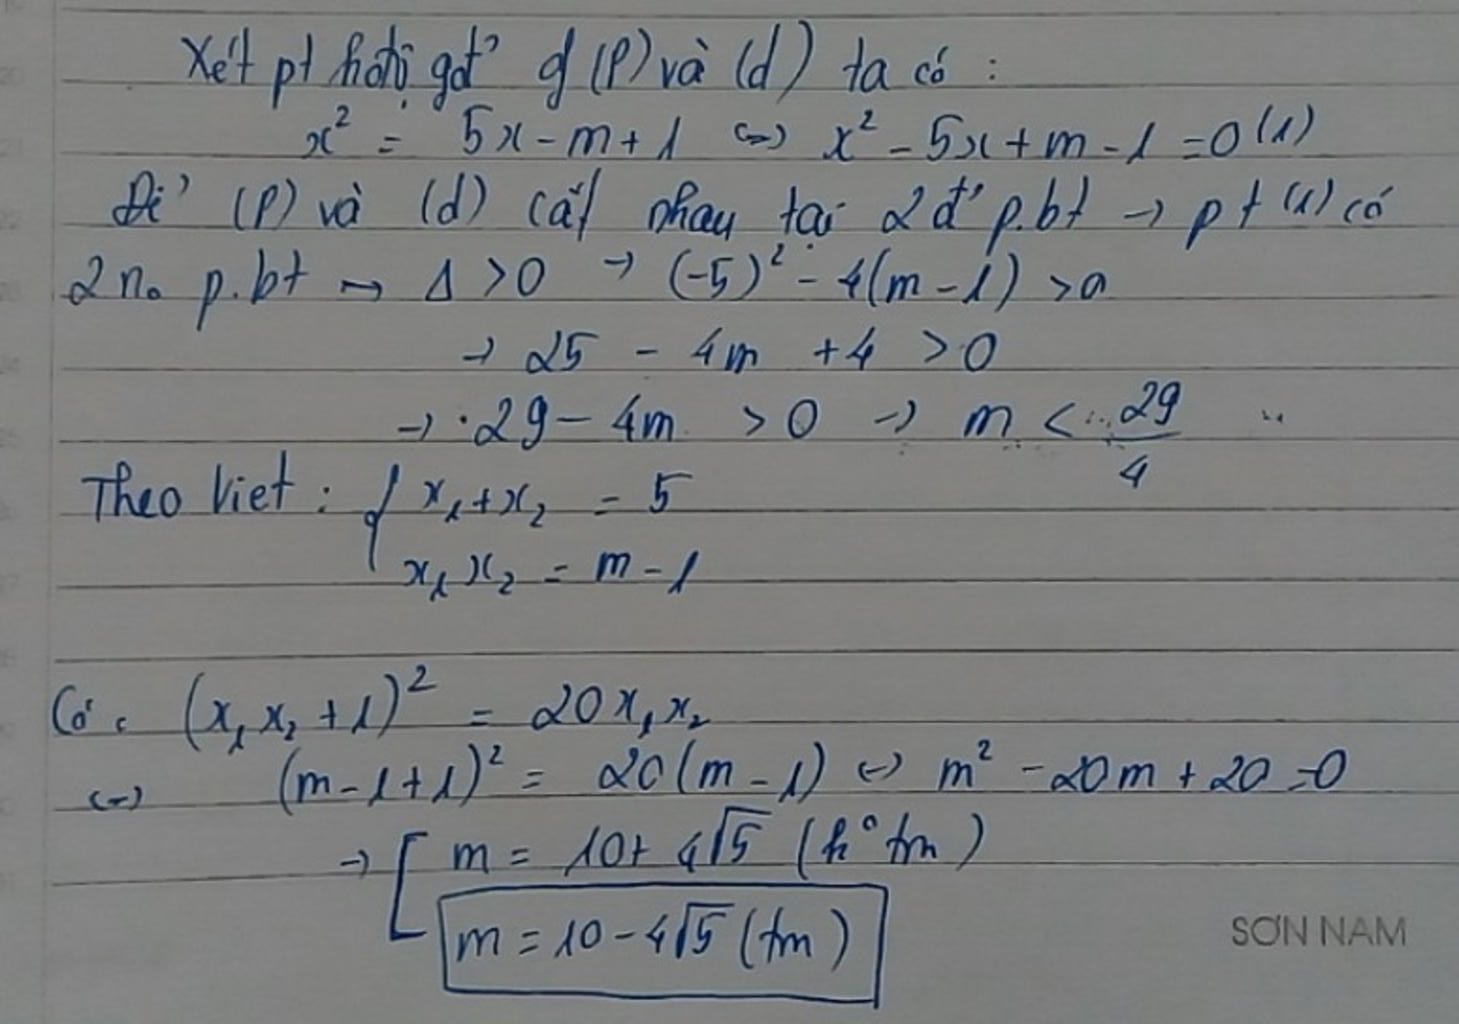 Xét pt hđộ gđ' of (P) và (d) ta có :
x² = 5x - m + 1 <=> x² - 5x + m - 1 = 0 (1)
Để (P) và (d) cắt nhau tại 2 đ' p.bt → pt (1) có
2 n₀ p.bt → Δ > 0 → (-5)² - 4(m - 1) > 0
→ 25 - 4m + 4 > 0
→ 29 - 4m > 0 → m < 29/4
Theo Viet : { x₁ + x₂ = 5
x₁x₂ = m - 1
Có : (x₁x₂ + 1)² = 20x₁x₂
<=> (m - 1 + 1)² = 20(m - 1) <=> m² - 20m + 20 = 0
→ [ m = 10 + 4√5 (k° tm)
m = 10 - 4√5 (tm)
SƠN NAM